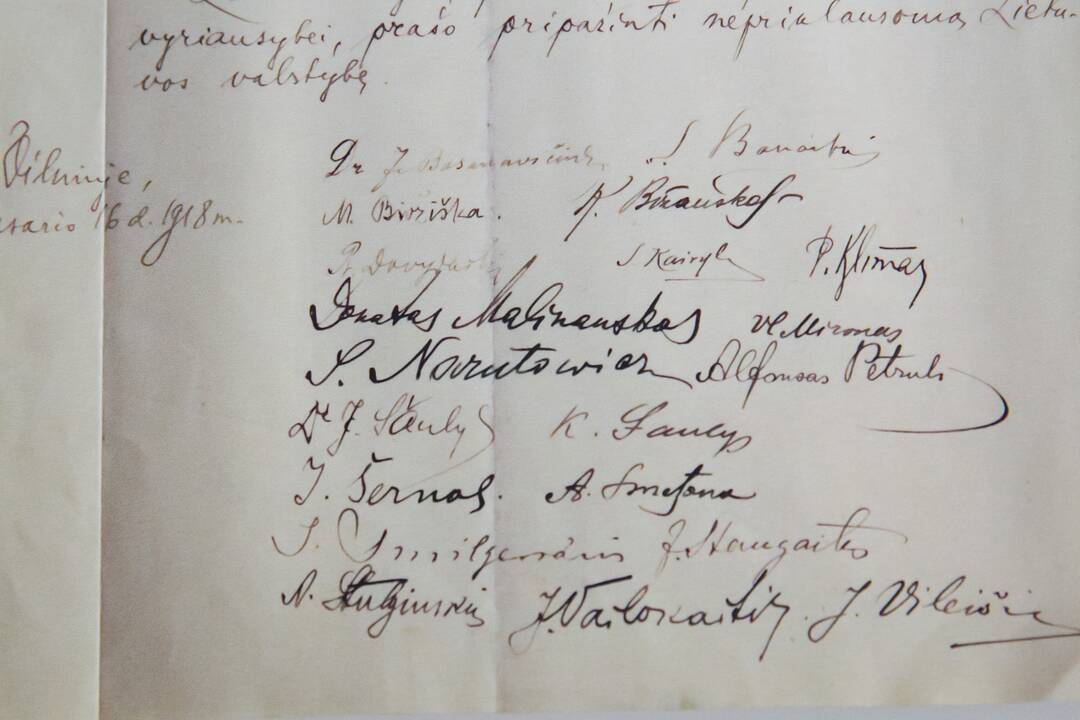 vyriausybei, prašo pripažinti nepriklausomą Lietu-
vos valstybę.
Vilniuje,
vasario 16 d. 1918 m.
Dr J. Basanavičius S. Banaitis
M. Biržiška. K. Bizauskas
Pr. Dovydaitis S Kairys P. Klimas
Donatas Malinauskas Vl Mironas
S. Narutowicz Alfonsas Petrulis
Dr J. Šaulys K. Šaulys
J. Šernas. A. Smetona
J. Smilgevičius J. Staugaitis
A. Stulginskis J. Vailokaitis. J. Vileišis